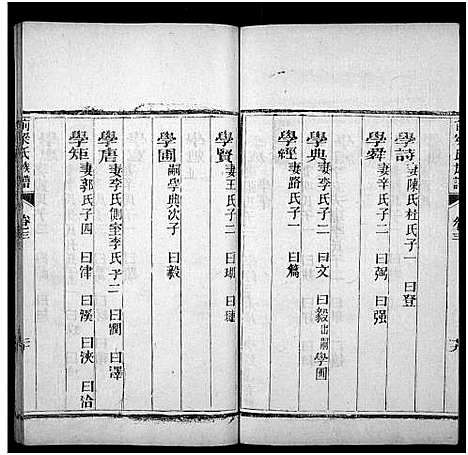 學詩
妻陳氏杜氏子一 曰登
學舜
妻辛氏子二 曰弼 曰强
學典
妻李氏子二 曰文 曰毅出嗣學圃
學經
妻路氏子一 曰篇
學賢
妻王氏子二 曰瑚 曰璉
學圃
嗣學典次子 曰毅
學唐
妻李氏側室李氏子二 曰潤 曰澤
學矩
妻郭氏子四 曰津 曰溪 曰浹 曰洽
梁氏族譜
卷三